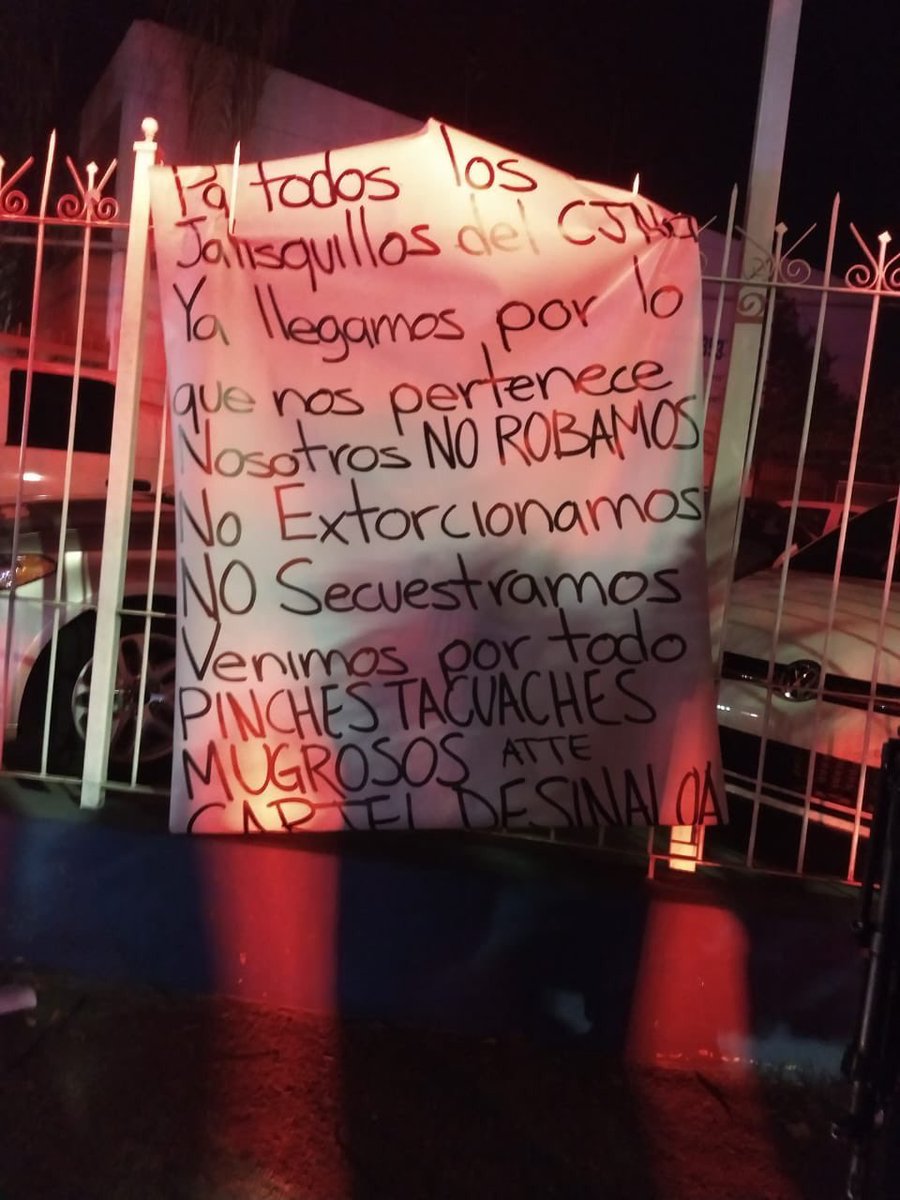 Pa todos los
Jalisquillos del CJNG
Ya llegamos por lo
que nos pertenece
Nosotros NO ROBAMOS
No Extorcionamos
NO Secuestramos
Venimos por todo
PINCHES TACUACHES
MUGROSOS ATTE
CARTEL DE SINALOA